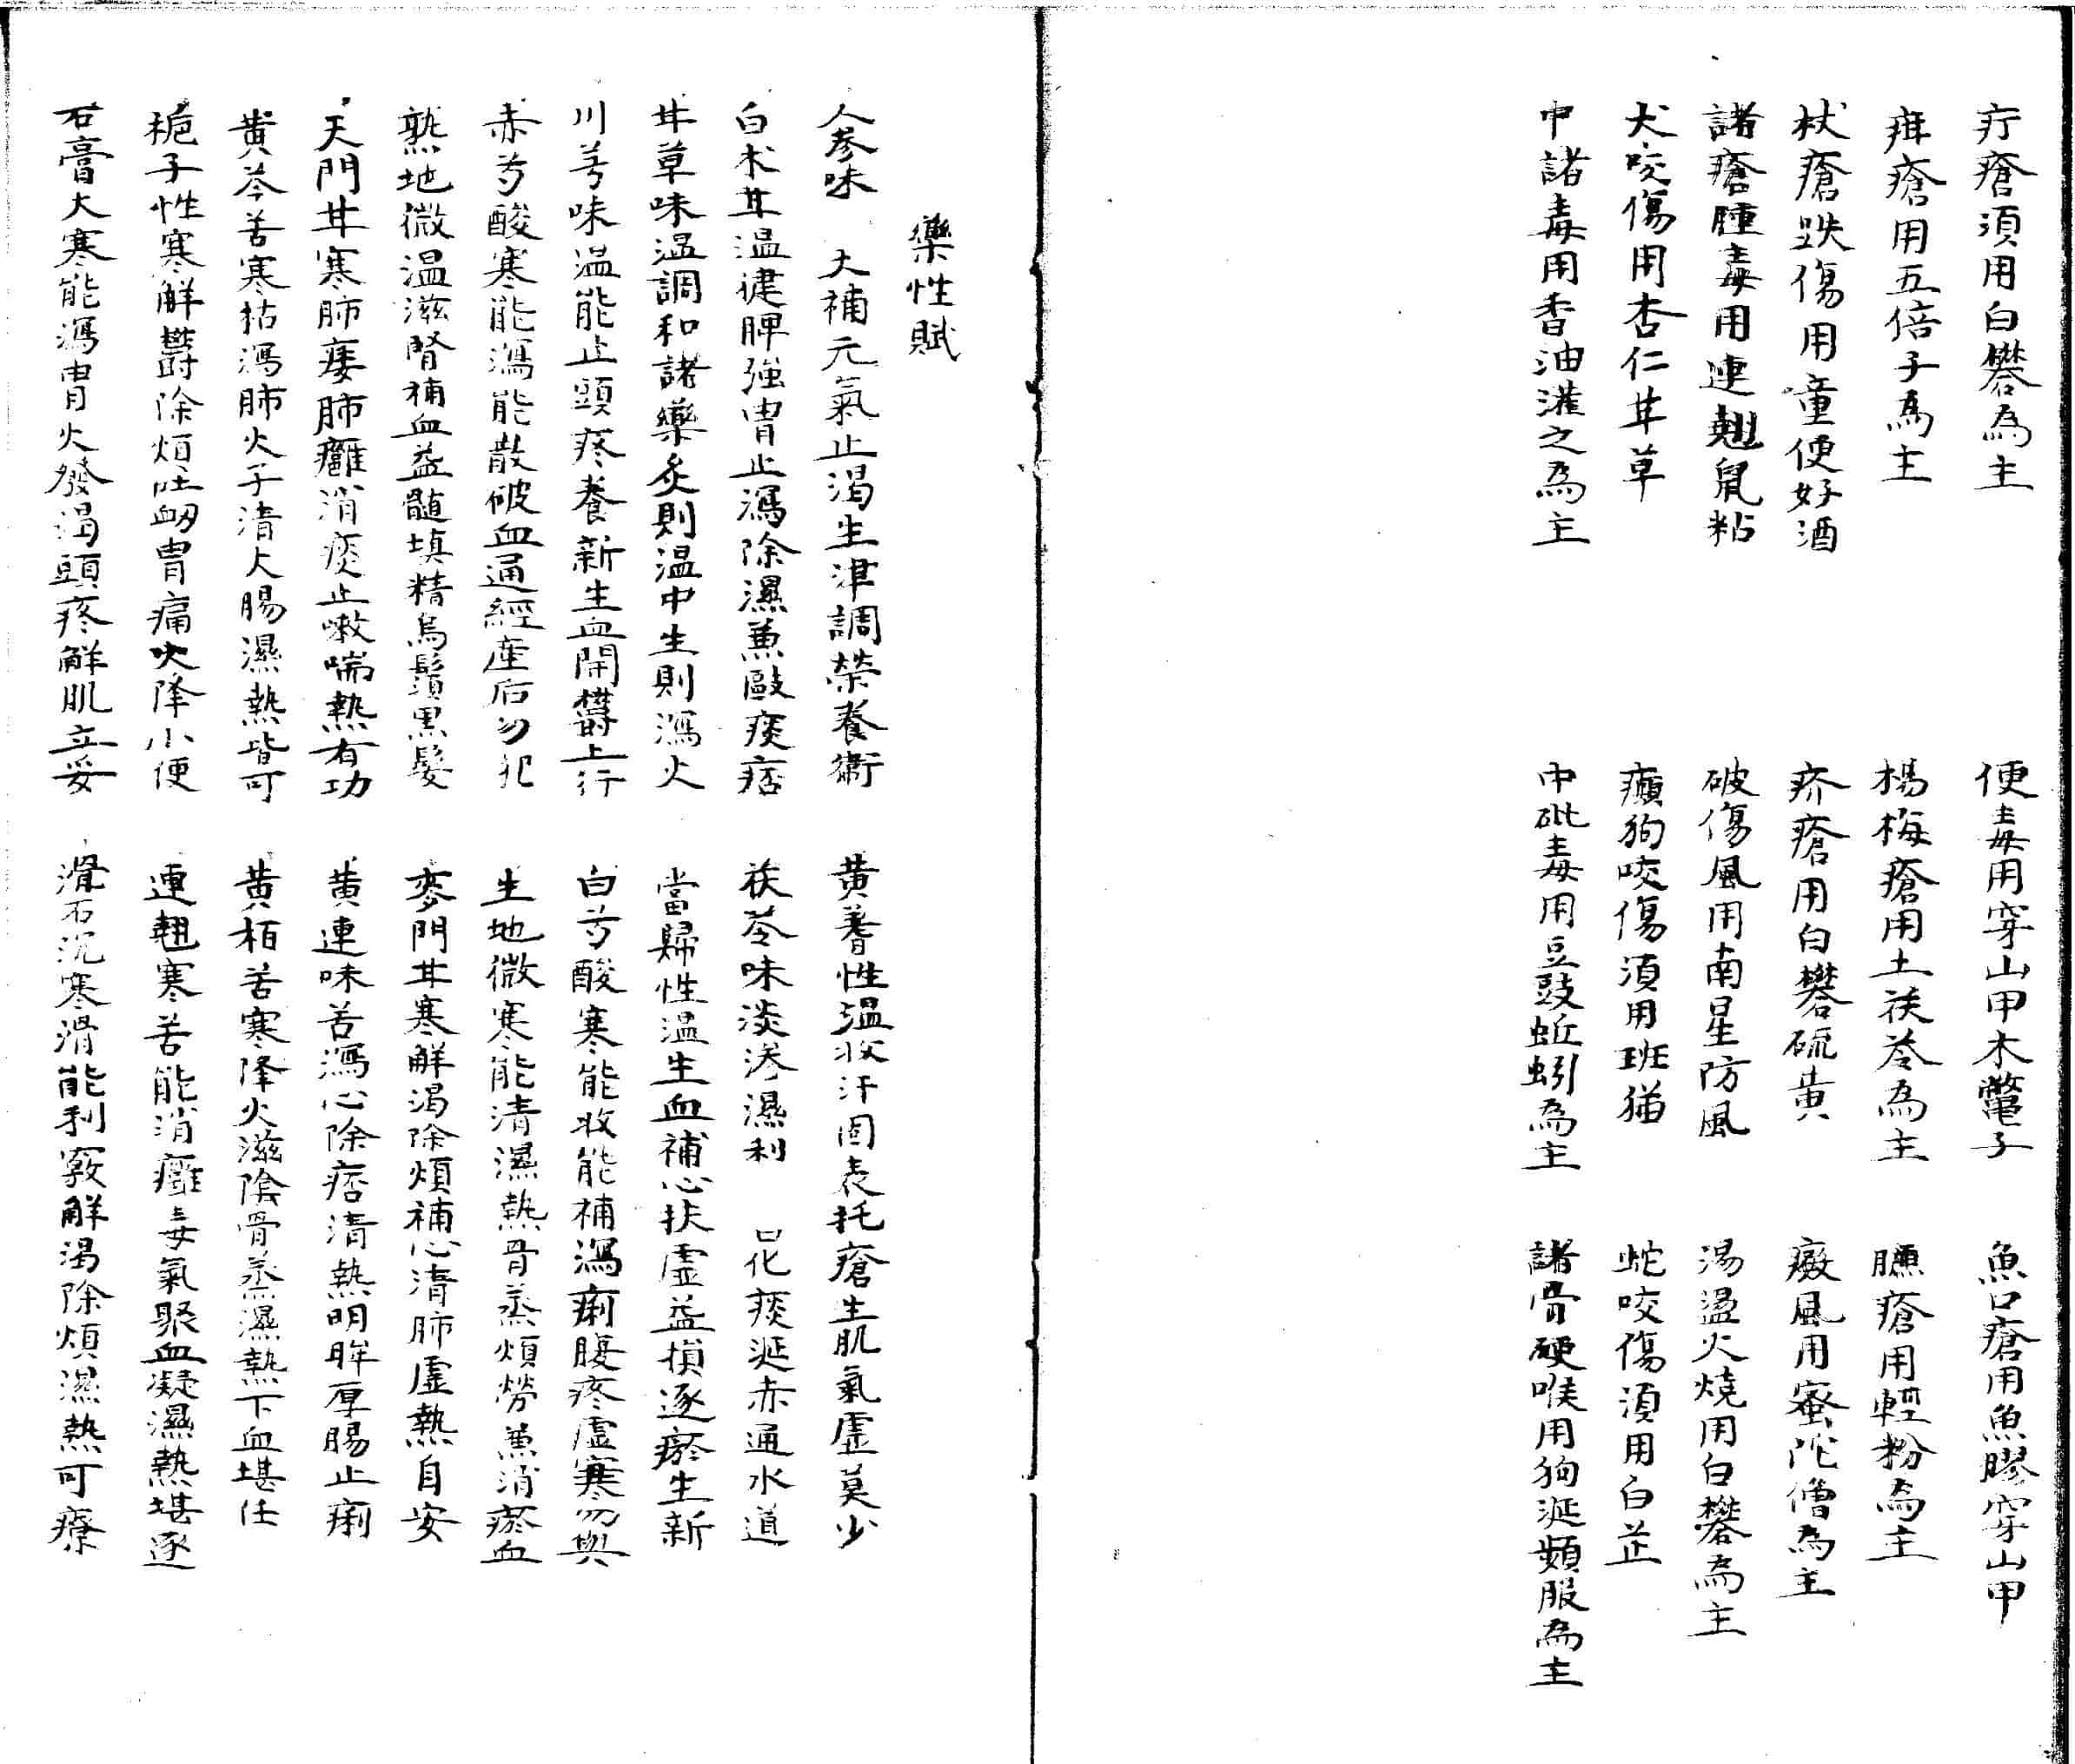 疔瘡須用白礬為主　便毒用穿山甲木鼈子　魚口瘡用魚膠穿山甲
疳瘡用五倍子為主　楊梅瘡用土茯苓為主　臁瘡用輕粉為主
杖瘡跌傷用童便好酒　疥瘡用白礬硫黄　癜風用蜜陀僧為主
諸瘡腫毒用連翹鼠粘　破傷風用南星防風　湯盪火燒用白礬為主
犬咬傷用杏仁甘草　癲狗咬傷須用班猫　蛇咬傷須用白芷
中諸毒用香油灌之為主　中砒毒用豆豉蚯蚓為主　諸骨硬喉用狗涎頻服為主
藥性賦
人參味　大補元氣止渴生津調榮養衛　黄蓍性溫收汗固表托瘡生肌氣虛莫少
白术甘溫健脾強胃止瀉除濕兼敺痰痞　茯苓味淡滲濕利　　化痰涎赤通水道
甘草味温調和諸藥炙則温中生則瀉火　當歸性溫生血補心扶虛益損逐瘀生新
川芎味溫能止頭疼養新生血開欝上行　白芍酸寒能收能補瀉痢腹疼虛寒勿與
赤芍酸寒能瀉能散破血通經產后勿犯　生地微寒能清濕熱骨蒸煩勞兼消瘀血
熟地微溫滋腎補血益髓填精烏鬚黑髮　麥門甘寒解渴除煩補心清肺虛熱自安
天門甘寒肺痿肺癰消痰止嗽喘熱有功　黄連味苦瀉心除痞清熱明眸厚腸止痢
黄芩苦寒枯瀉肺火子清大腸濕熱皆可　黄栢苦寒降火滋陰骨蒸濕熱下血堪任
梔子性寒解欝除煩吐衂胃痛火降小便　連翹寒苦能消癰毒氣聚血凝濕熱堪逐
石膏大寒能瀉胃火發渴頭疼解肌立妥　滑石沉寒滑能利竅解渴除煩濕熱可療